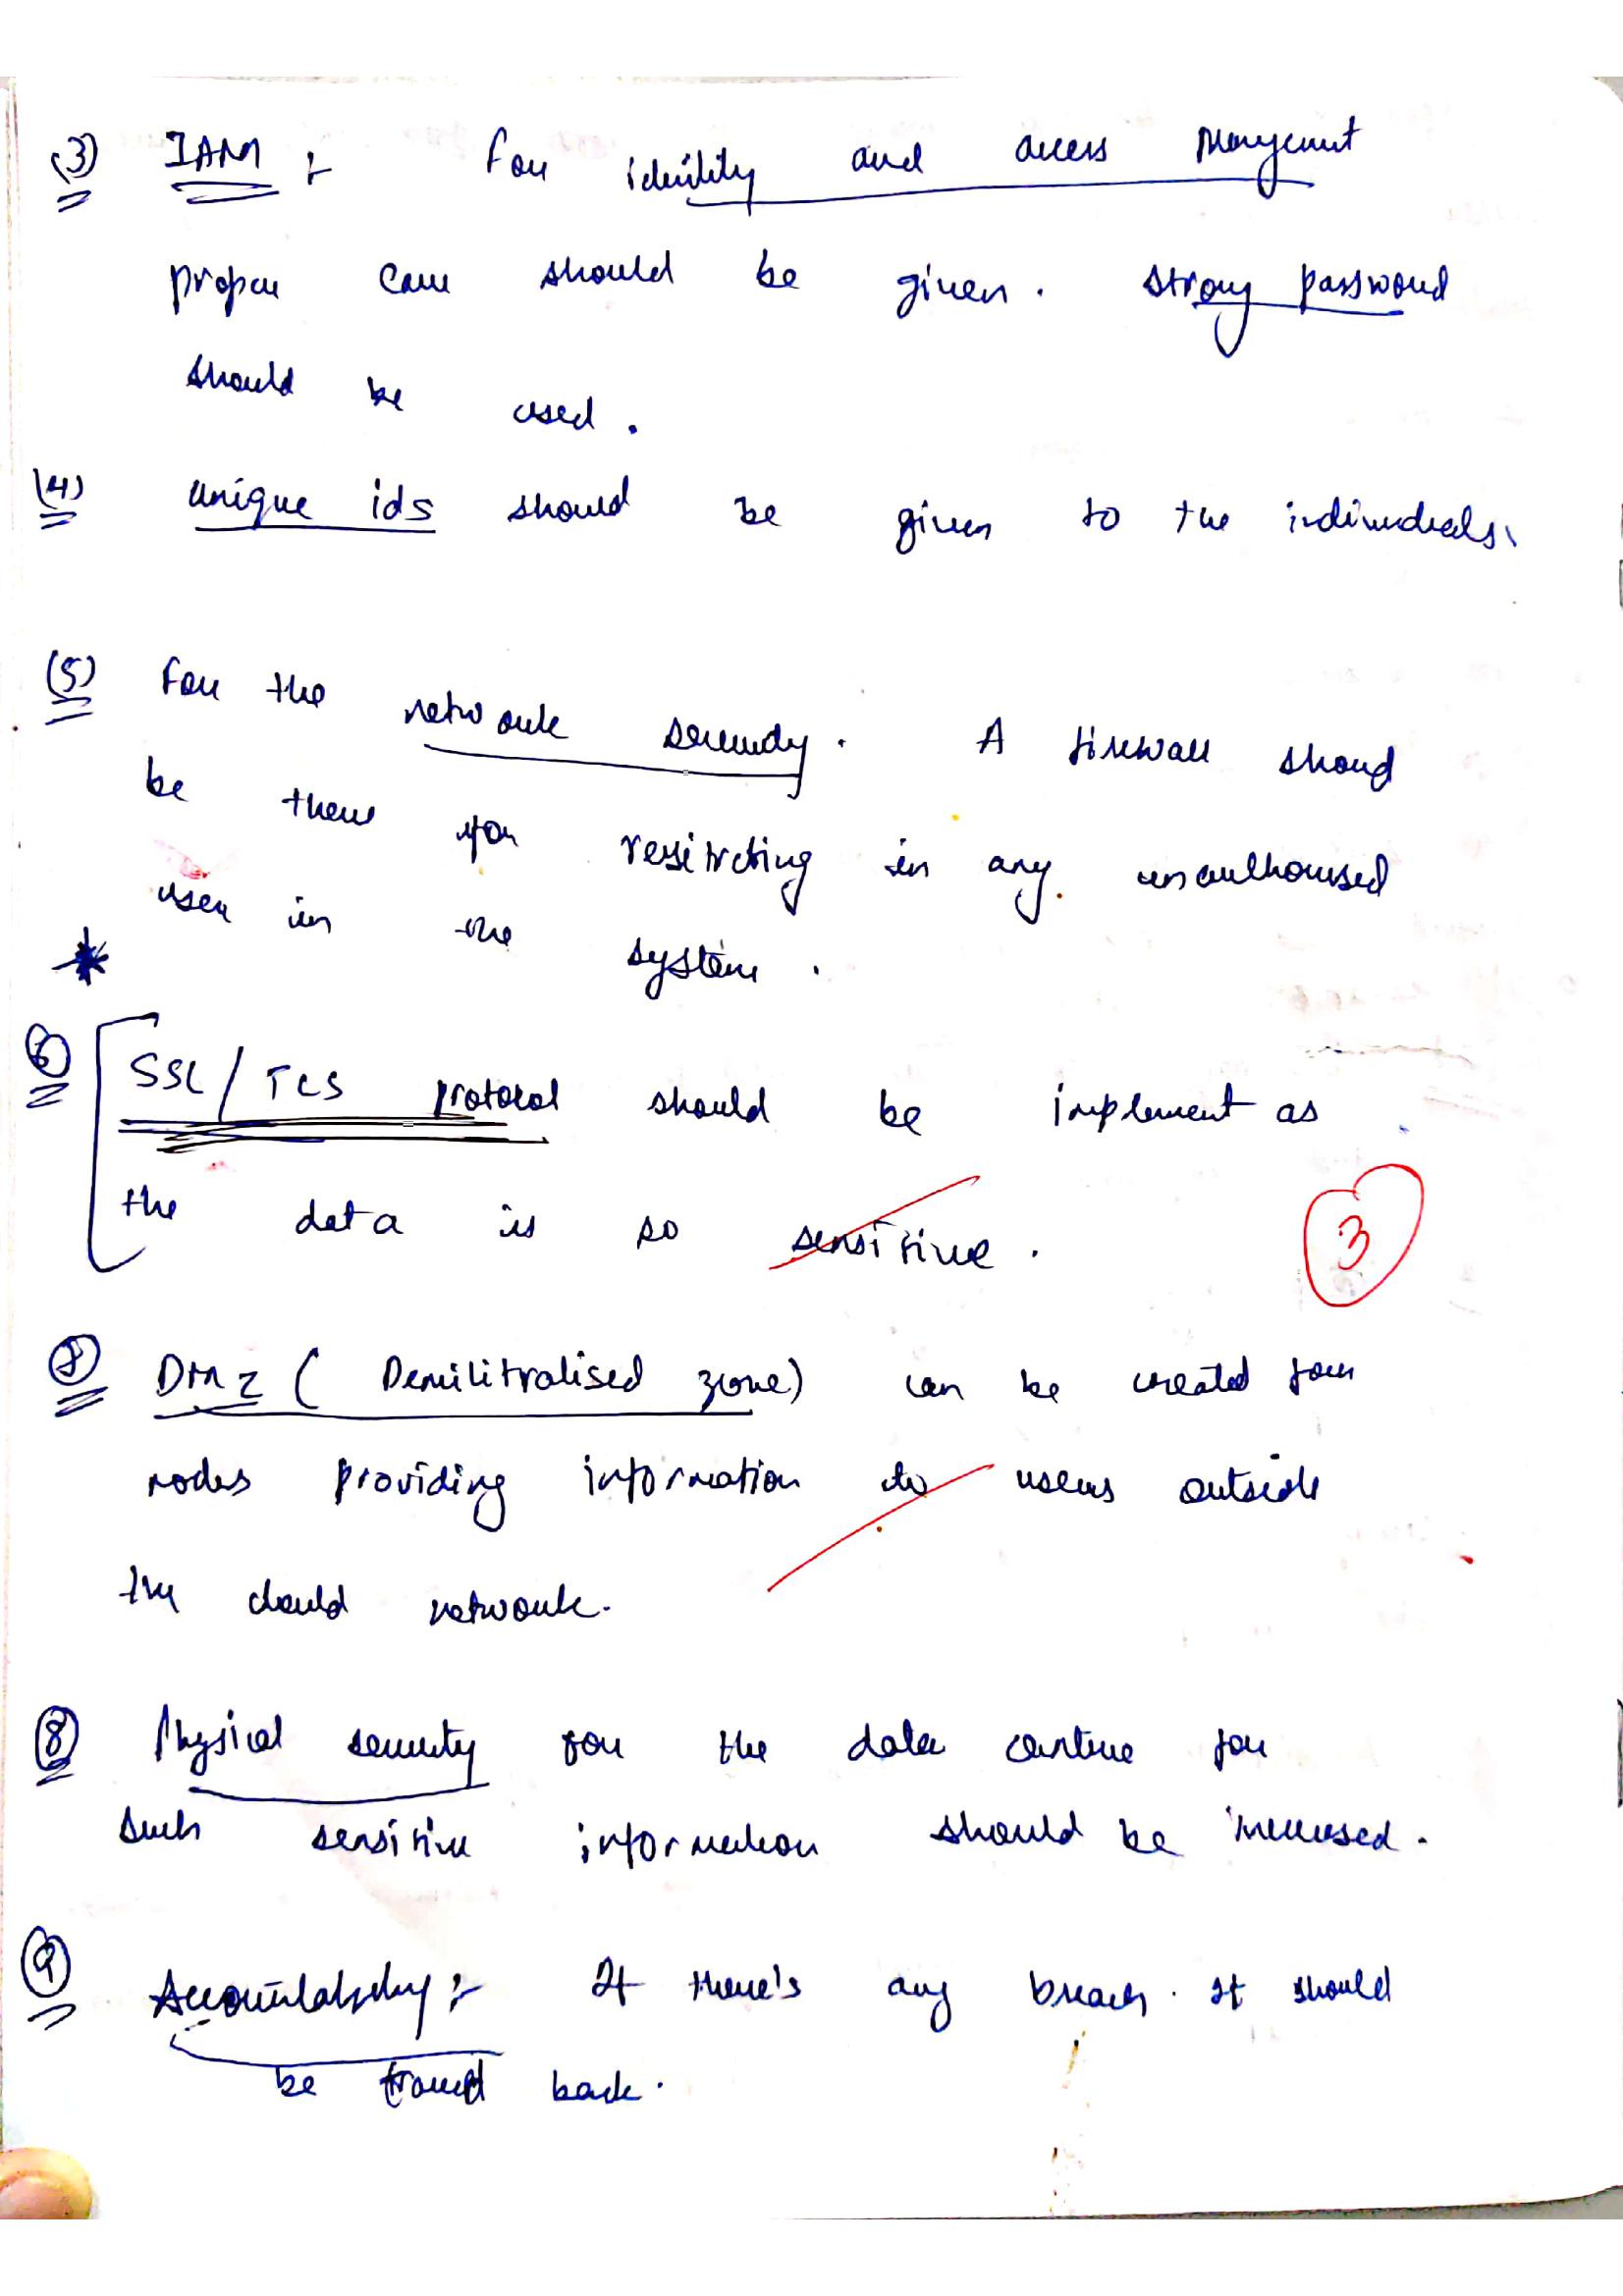 (3) IAM :- For identity and access Mangement
proper care should be given. strong password
should be used.
(4) unique ids should be given to the individuals.
(5) For the network security. A firewall shoud
be there for resitrcting in any unauthorised
user in the system.
(6) SSL / TLS protocol should be implement as
the data is so sensitive.
3
DMZ ( Demilitralised zone) can be created for
nodes providing information to users outside
the clould network.
(8) Physical security for the data centre for
such sensitive information should be increased.
(9) Accountability :- If there's any breach. It should
be traced back.